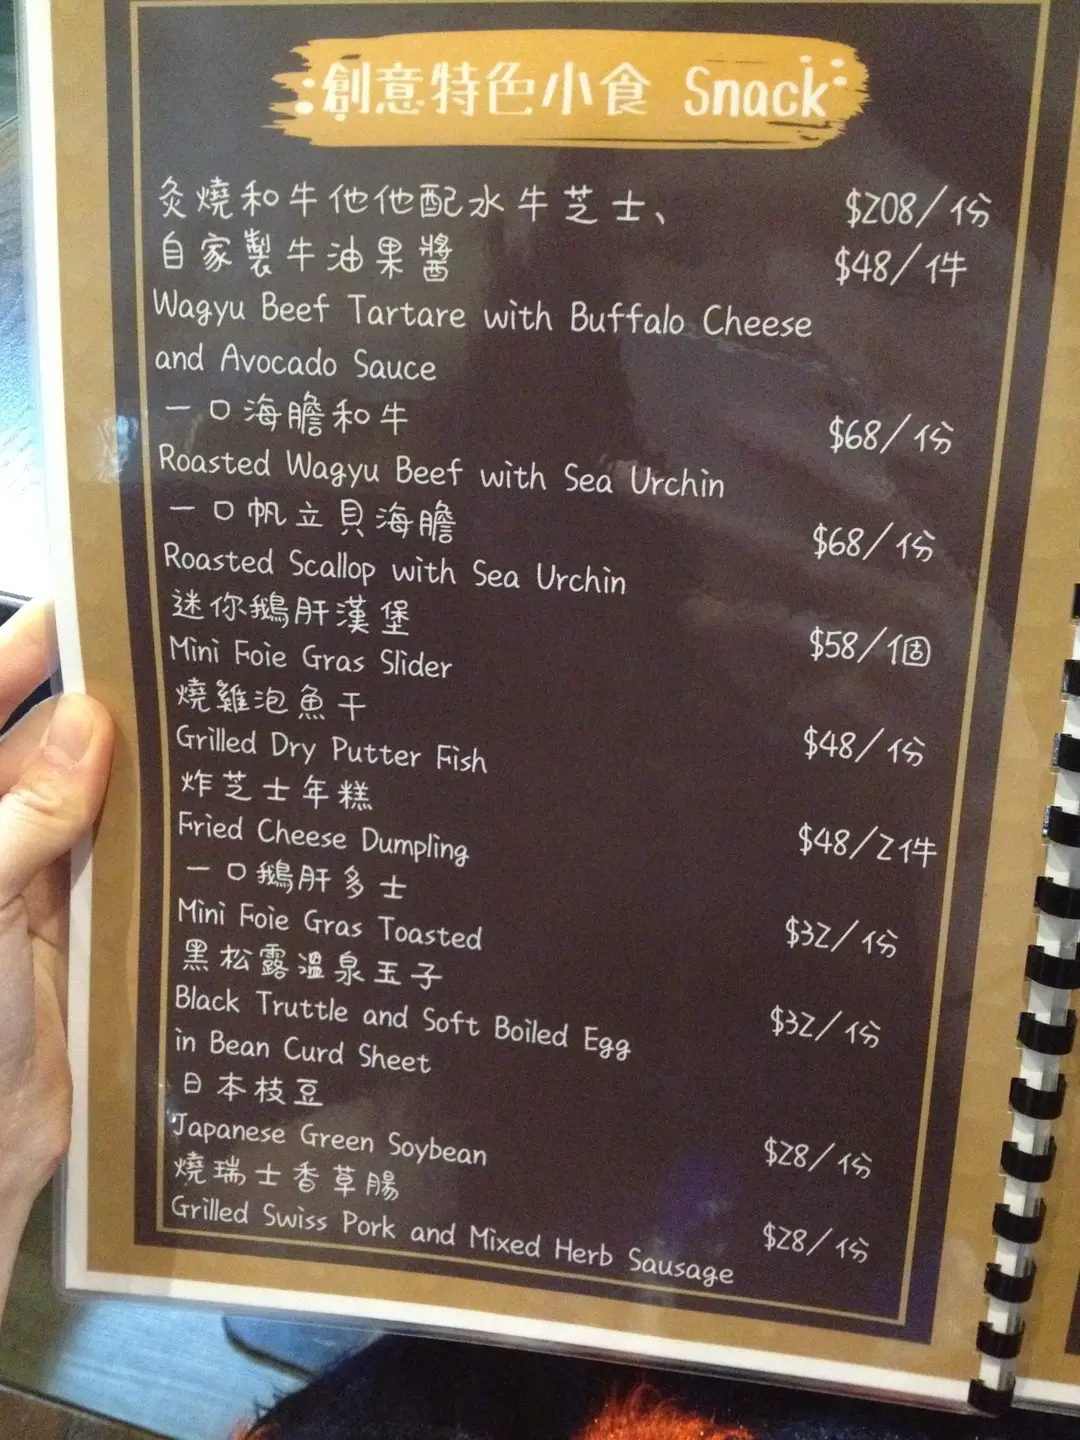 創意特色小食 Snack
炙燒和牛他他配水牛芝士、 $208/份
自家製牛油果醬 $48/件
Wagyu Beef Tartare with Buffalo Cheese
and Avocado Sauce
一口海膽和牛 $68/份
Roasted Wagyu Beef with Sea Urchin
一口帆立貝海膽 $68/份
Roasted Scallop with Sea Urchin
迷你鵝肝漢堡 $58/個
Mini Foie Gras Slider
燒雞泡魚干 $48/份
Grilled Dry Putter Fish
炸芝士年糕 $48/2件
Fried Cheese Dumpling
一口鵝肝多士 $32/份
Mini Foie Gras Toasted
黑松露溫泉玉子 $32/份
Black Truttle and Soft Boiled Egg
in Bean Curd Sheet
日本枝豆 $28/份
Japanese Green Soybean
燒瑞士香草腸 $28/份
Grilled Swiss Pork and Mixed Herb Sausage